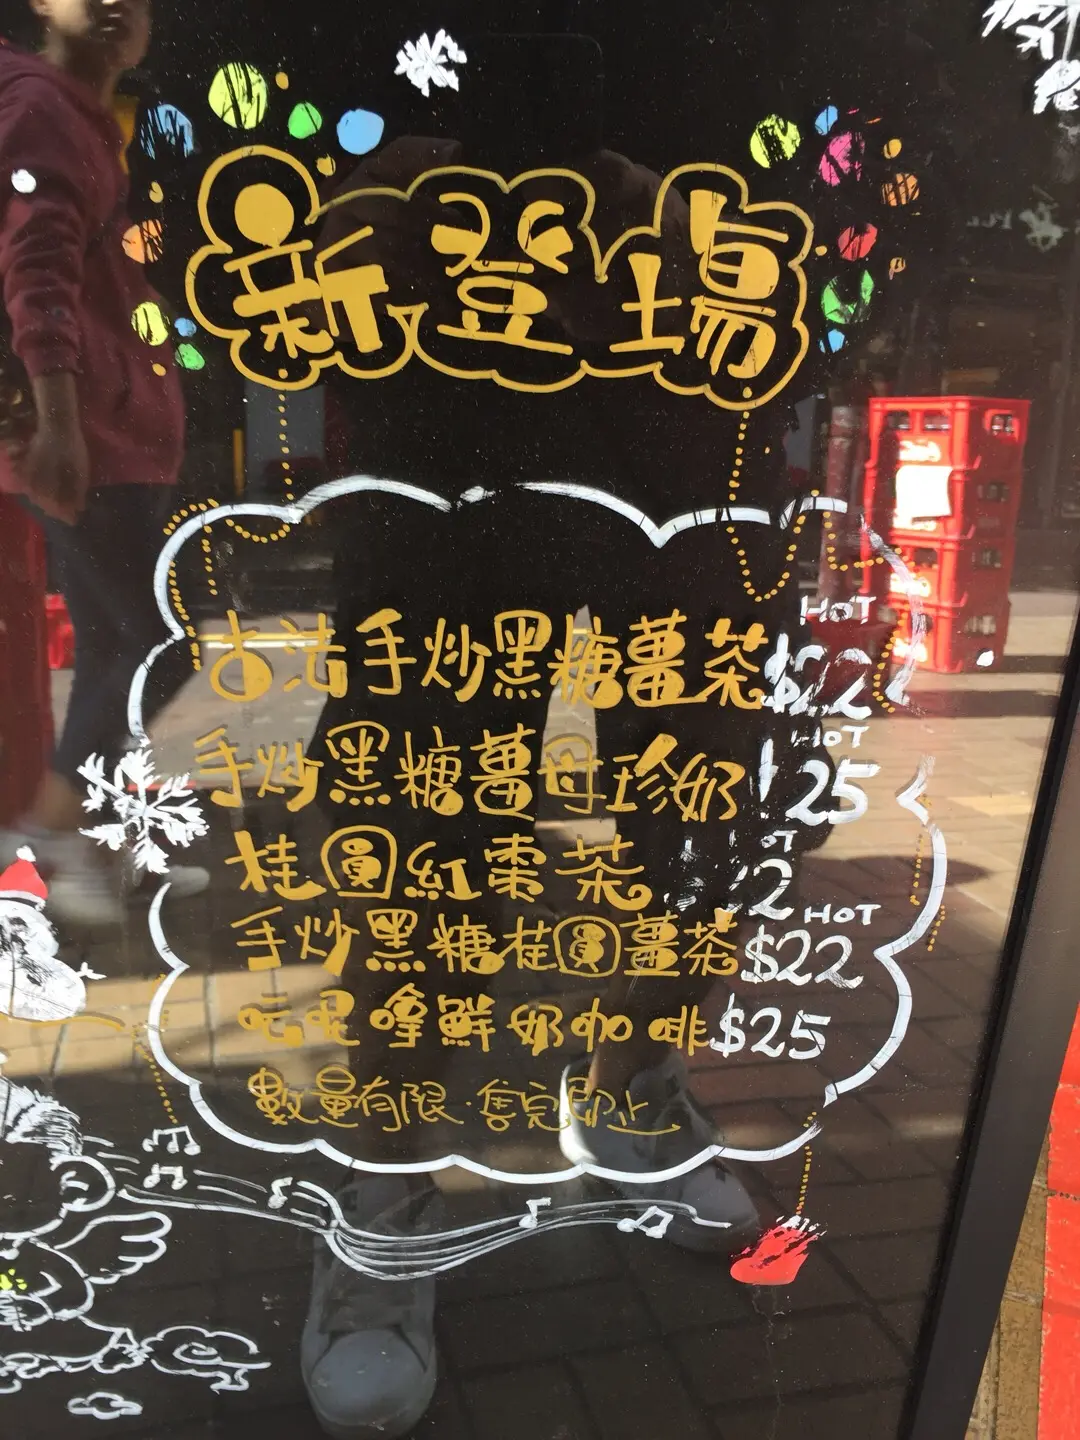 新登場
HOT
古法手炒黑糖薑茶$22
HOT
手炒黑糖薑母珍奶 25
桂圓紅棗茶
HOT
手炒黑糖桂圓薑茶$22
鮮奶咖啡$25
數量有限·售完即止